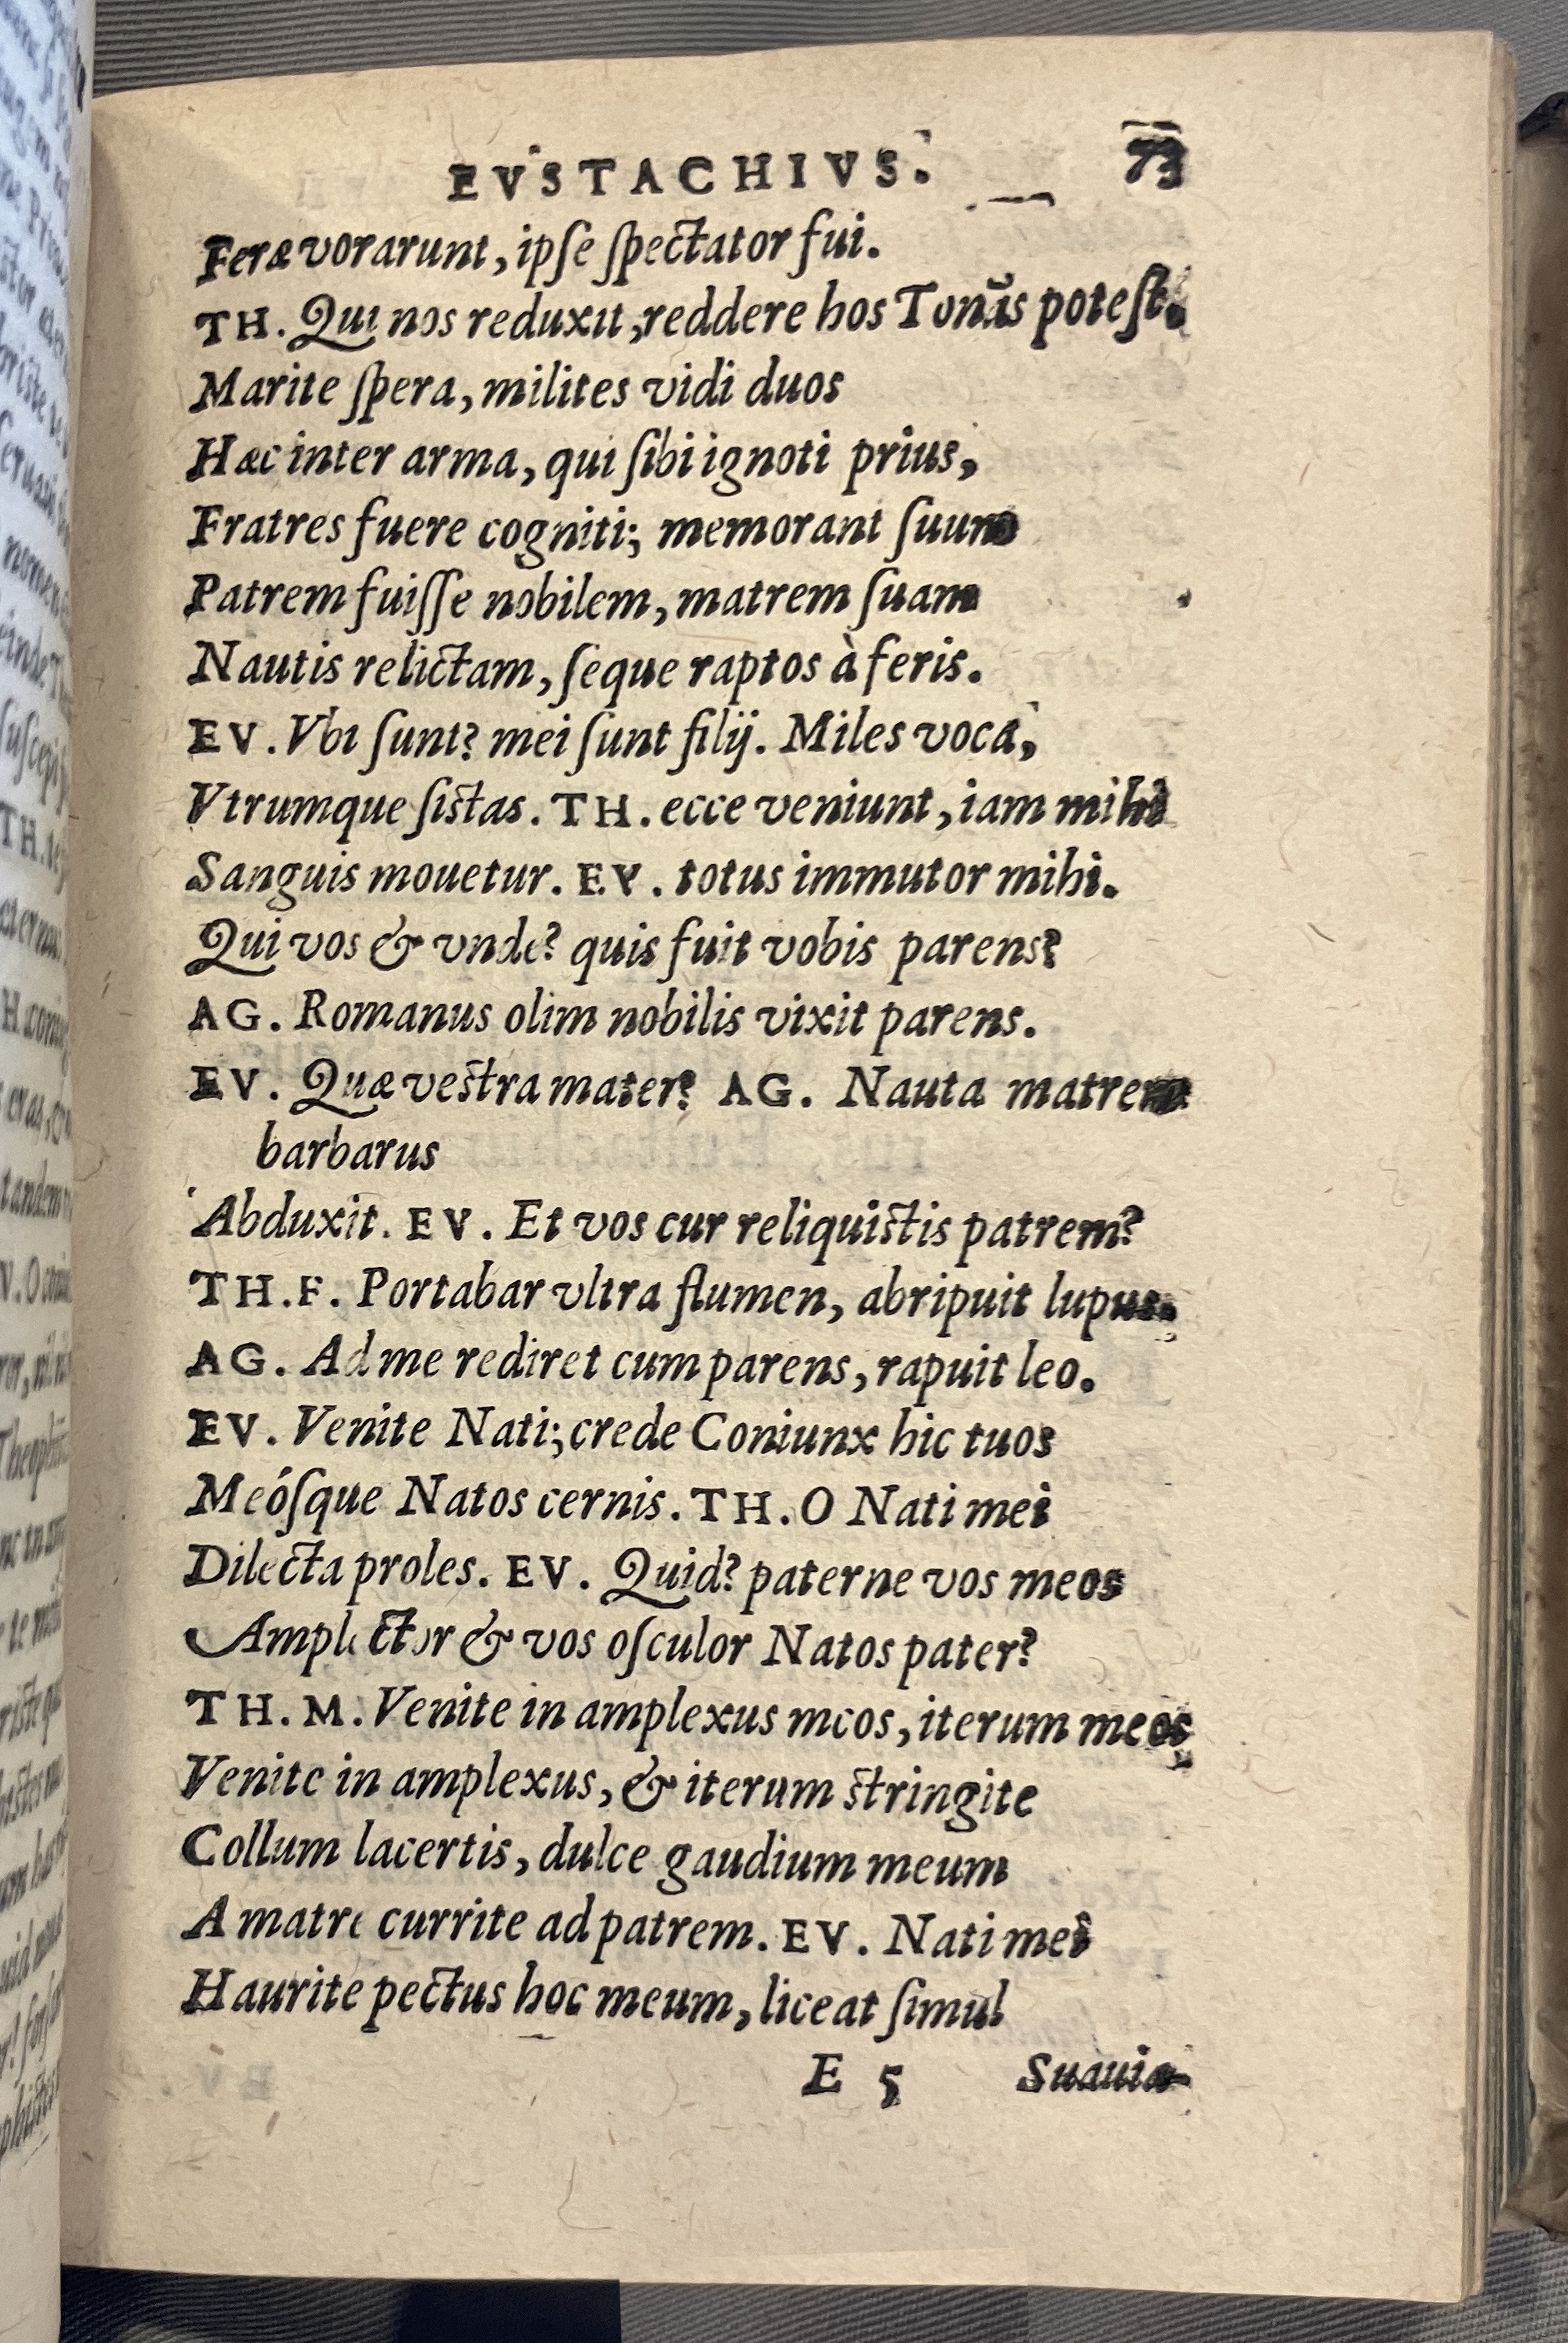 EVSTACHIVS. 73
Feræ vorarunt, ipſe ſpectator fui.
TH. Qui nos reduxit, reddere hos Tonãs poteſt.
Marite ſpera, milites vidi duos
Hæc inter arma, qui ſibi ignoti prius,
Fratres fuere cogniti; memorant ſuum
Patrem fuiſſe nobilem, matrem ſuam
Nautis relictam, ſeque raptos à feris.
EV. Vbi ſunt? mei ſunt filij. Miles voca,
Vtrumque ſiſtas. TH. ecce veniunt, iam mihi
Sanguis mouetur. EV. totus immutor mihi.
Qui vos & vnde? quis fuit vobis parens?
AG. Romanus olim nobilis vixit parens.
EV. Quæ veſtra mater? AG. Nauta matrem
barbarus
Abduxit. EV. Et vos cur reliquiſtis patrem?
TH.F. Portabar vltra flumen, abripuit lupus.
AG. Ad me rediret cum parens, rapuit leo.
EV. Venite Nati; crede Coniunx hic tuos
Meóſque Natos cernis. TH. O Nati mei
Dilecta proles. EV. Quid? paterne vos meos
Amplector & vos oſculor Natos pater?
TH. M. Venite in amplexus meos, iterum meos
Venite in amplexus, & iterum ſtringite
Collum lacertis, dulce gaudium meum
A matre currite ad patrem. EV. Nati mei
Haurite pectus hoc meum, liceat ſimul
E 5 Suauia